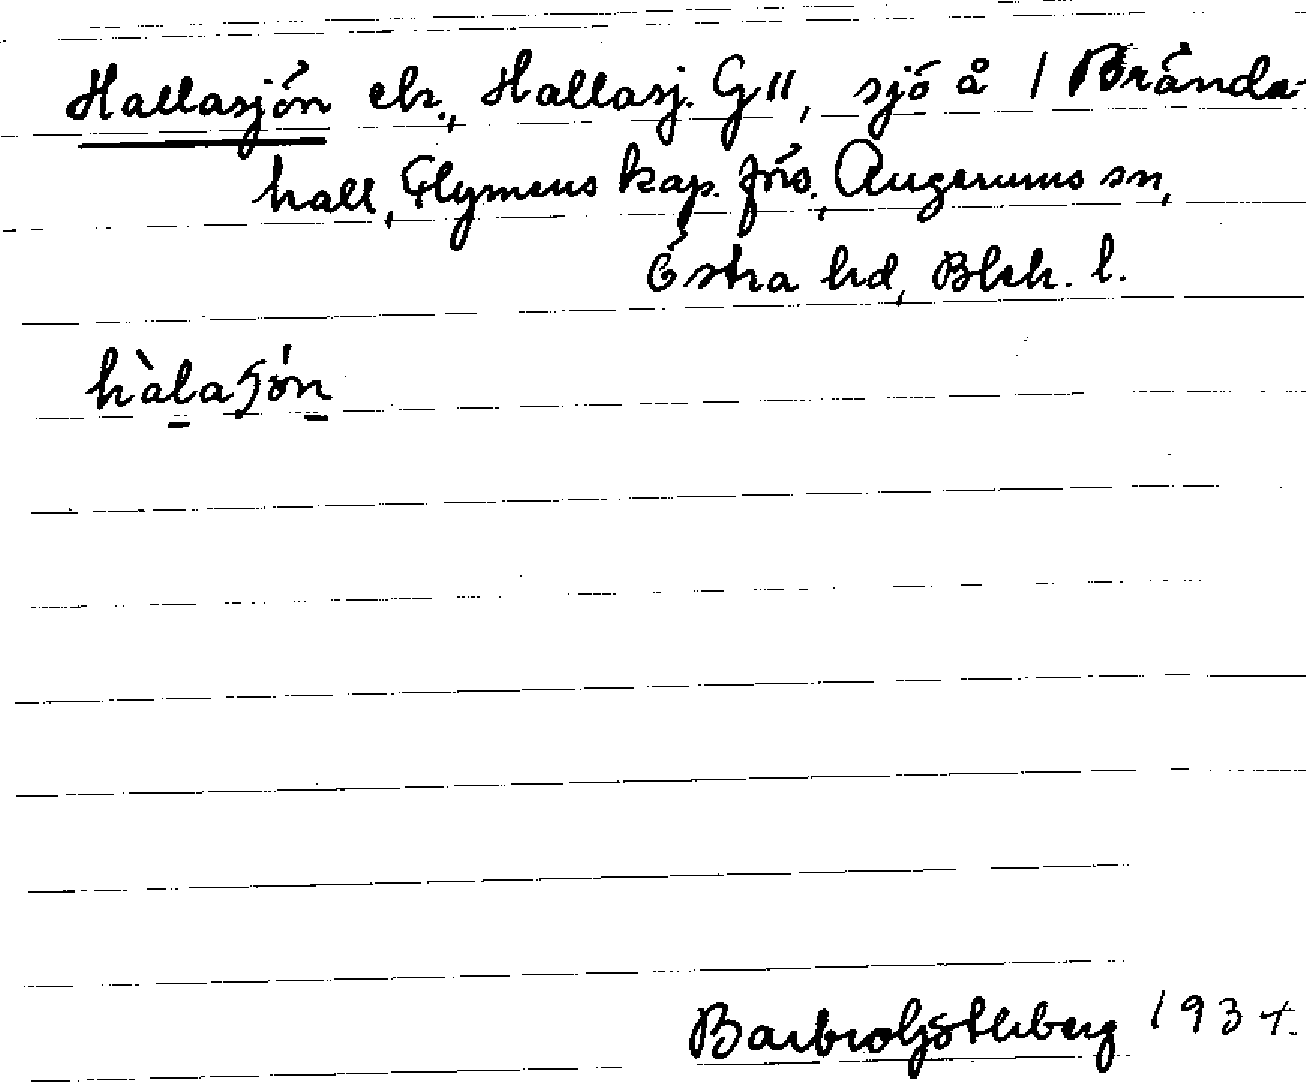 Hallasjön ek., Hallasj. G", sjö å / Brända-
hall, Flymens kap. förs., Augerums sn,
Östra hd, Blek. l.
hàlaʃö́n
Barbro Söderberg 1934.